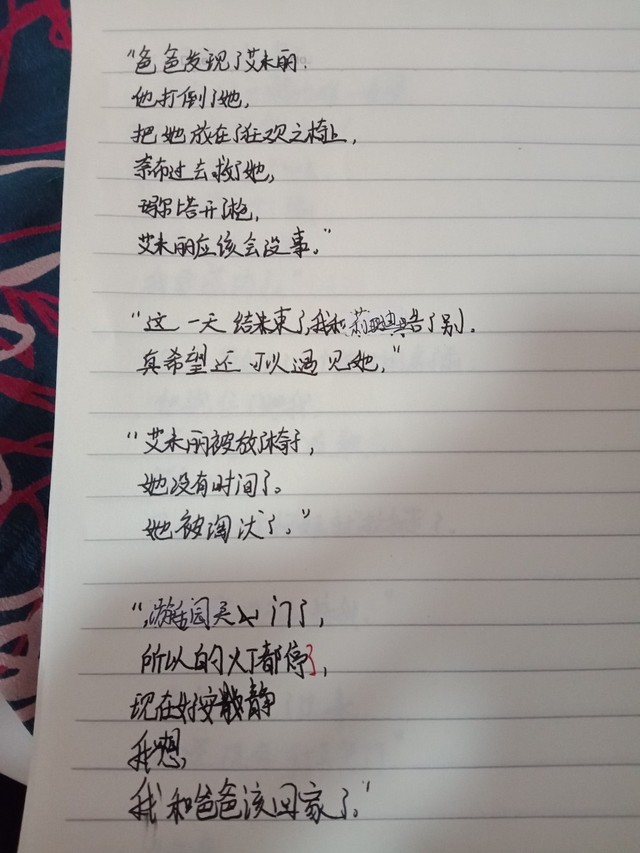 "爸爸发现了艾米丽.
他打倒了她,
把她放在了狂欢之椅上,
奈布过去救了她,
玛尔塔开了枪,
艾米丽应该会没事."
"这一天结束了,我和莉迪亚告了别.
真希望还可以遇见她,"
"艾米丽被放了椅子,
她没有时间了。
她被淘汰了."
"游园关门了,
所以的灯都停了,
现在好安静
我想,
我和爸爸该回家了."